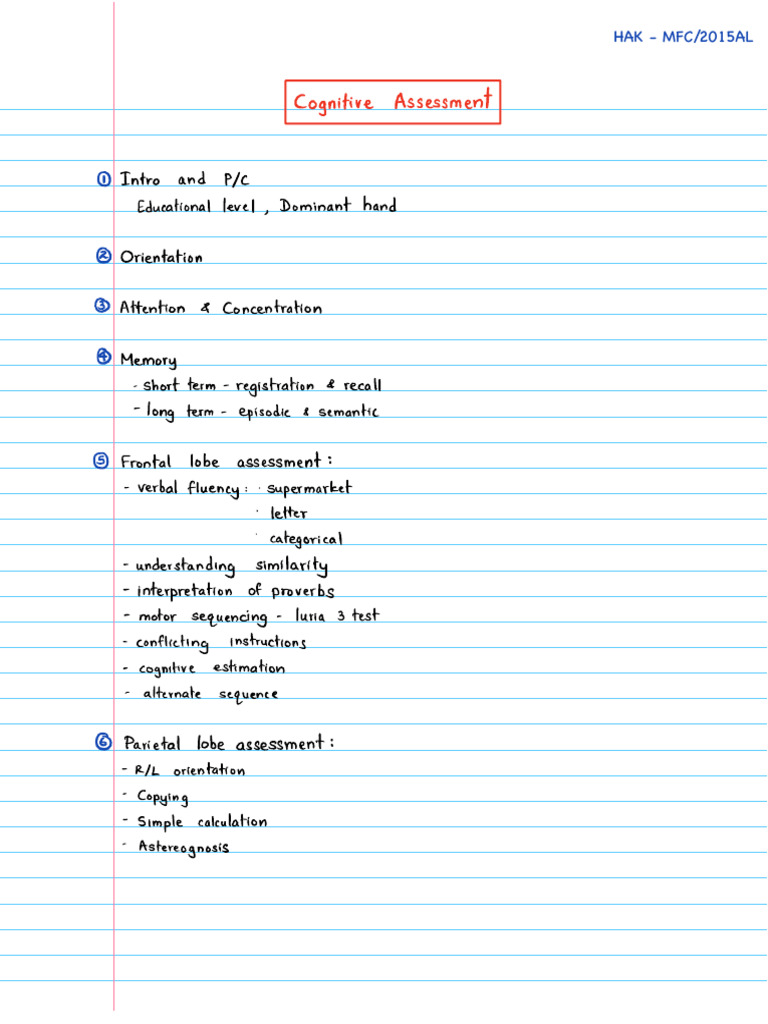 HAK - MFC/2015AL
Cognitive Assessment
① Intro and P/C
Educational level , Dominant hand
② Orientation
③ Attention & Concentration
④ Memory
- short term - registration & recall
- long term - episodic & semantic
⑤ Frontal lobe assessment :
- verbal fluency : · supermarket
· letter
· categorical
- understanding similarity
- interpretation of proverbs
- motor sequencing - luria 3 test
- conflicting instructions
- cognitive estimation
- alternate sequence
⑥ Parietal lobe assessment :
- R/L orientation
- Copying
- Simple calculation
- Astereognosis